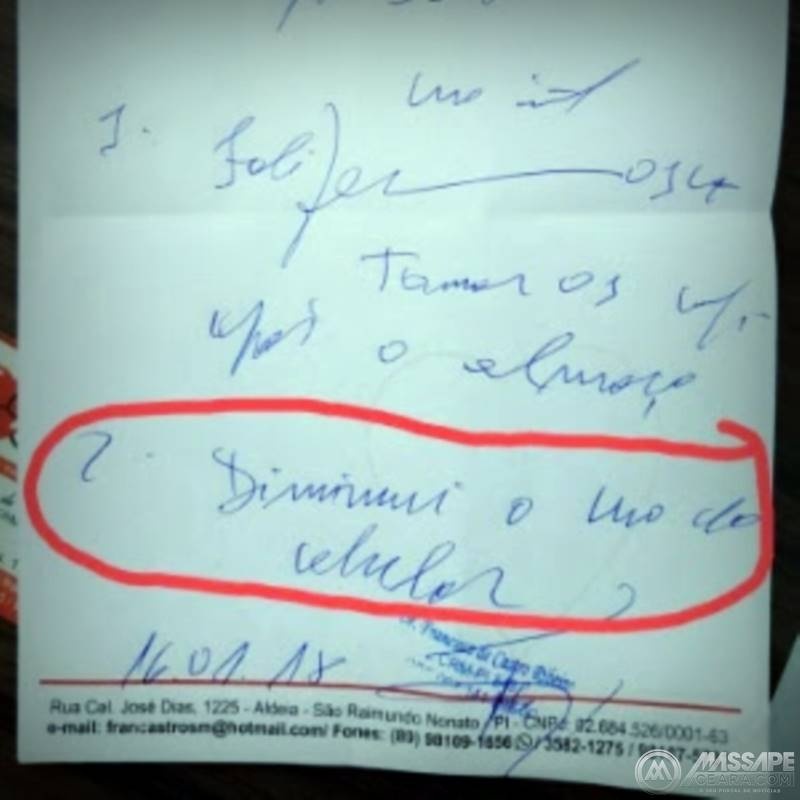 uso int
1. Folifer 03 cx
Tomar 01 cp.
após o almoço
2. Diminuir o uso do
celular
16.01.18
Dr. Francisco de Castro
Rua Cel. José Dias, 1225 - Aldeia - São Raimundo Nonato / PI - CNPJ: 02.684.526/0001-63
e-mail: francastrosm@hotmail.com/ Fones: (89) 98109-1656 / 3582-1275 /
MASSAPÊ
CEARA.COM
O SEU PORTAL DE NOTÍCIAS